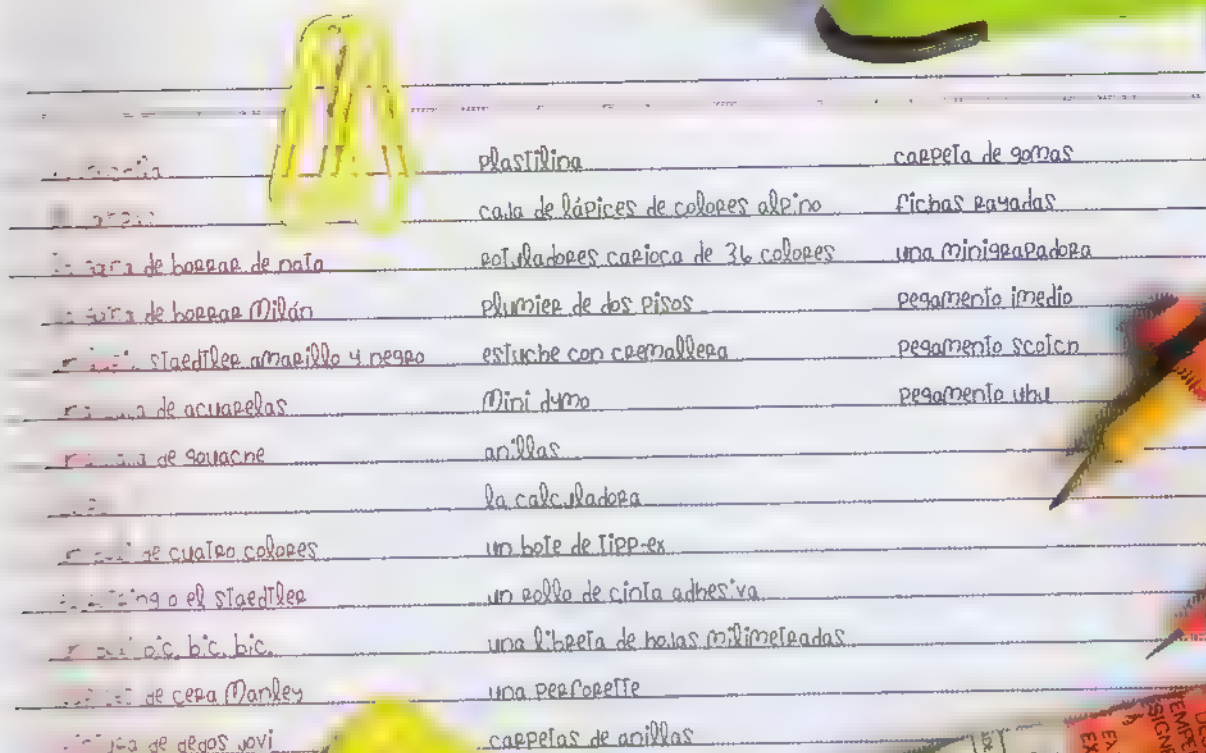 de borrar de nata
de borrar Milán
staedtler amarillo y negro
de acuarelas
de gouache
de cuatro colores
o el staedtler
bic, bic, bic.
de cera Manley
de dedos jovi
plastilina
caja de lápices de colores alpino
rotuladores carioca de 36 colores
plumier de dos pisos
estuche con cremallera
Mini dymo
anillas
la calculadora
un bote de tipp-ex
un rollo de cinta adhesiva
una libreta de hojas milimetradas
una perforette
carpetas de anillas
carpeta de gomas
fichas rayadas
una minigrapadora
pegamento imedio
pegamento scotch
pegamento uhu